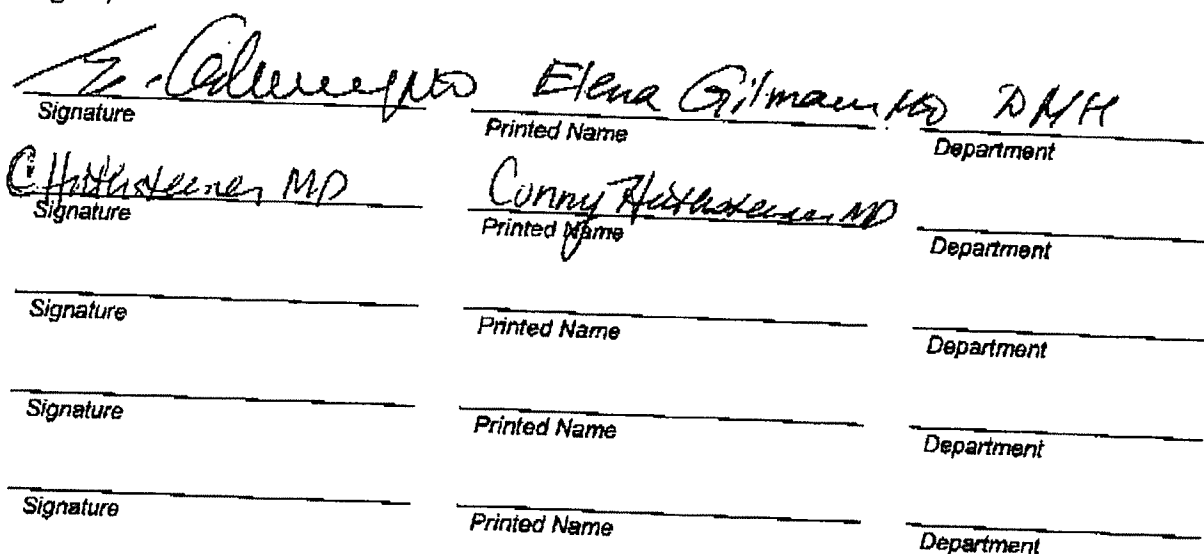 E. Gilman MD Elena Gilman MD DMH
Signature Printed Name Department
MD Conny MD
Signature Printed Name Department
Signature Printed Name Department
Signature Printed Name Department
Signature Printed Name Department